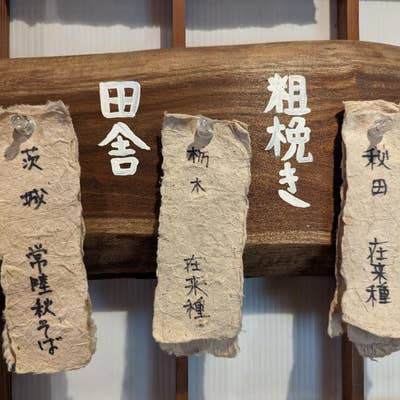 粗挽き
田舎
秋田 在来種
栃木 在来種
茨城 常陸秋そば